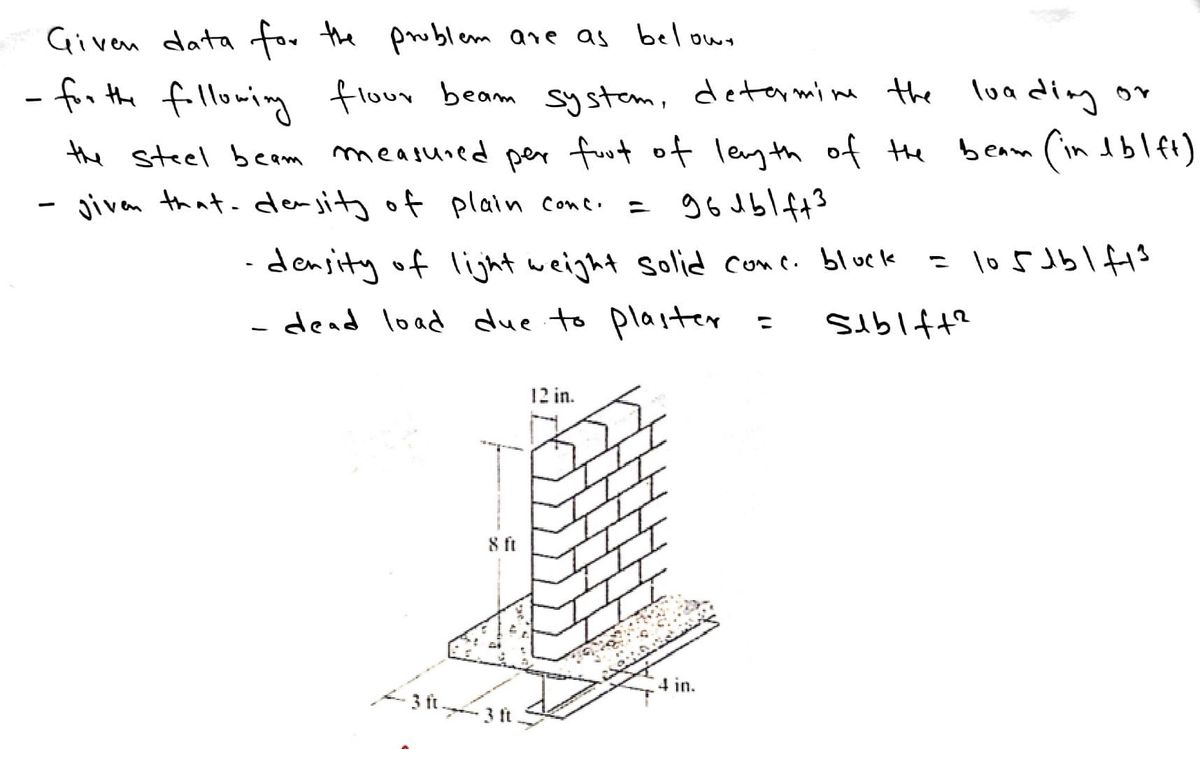 Given data for the problem are as below,
- for the following floor beam system, determine the loading or
the steel beam measured per foot of length of the beam (in lb/ft)
- given that - density of plain conc. = 96 lb/ft3
- density of light weight solid conc. block = 105 lb/ft3
- dead load due to plaster = 5lb/ft2
12 in.
8 ft
4 in.
3 ft
3 ft